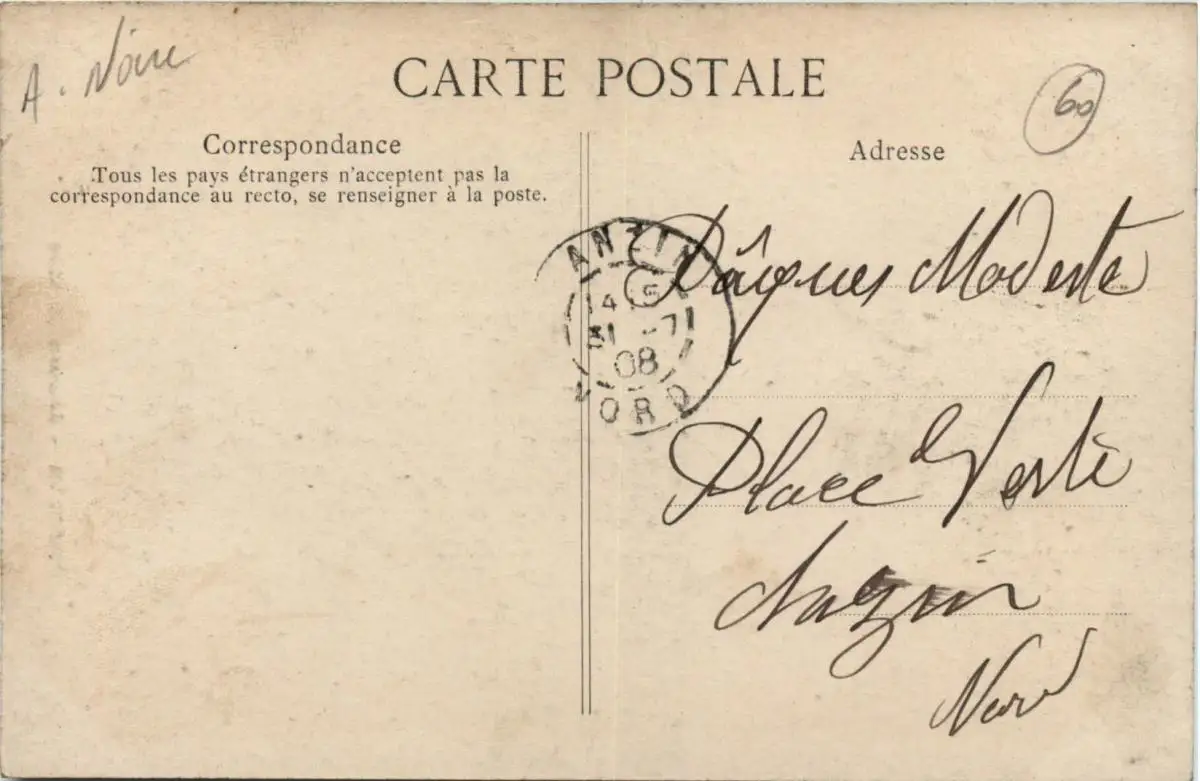 A. Noire
CARTE POSTALE
60
Correspondance
Tous les pays étrangers n'acceptent pas la
correspondance au recto, se renseigner à la poste.
Adresse
ANZIN
31 -7
08
NORD
Pâques Modeste
Place Verte
Anzin
Nord